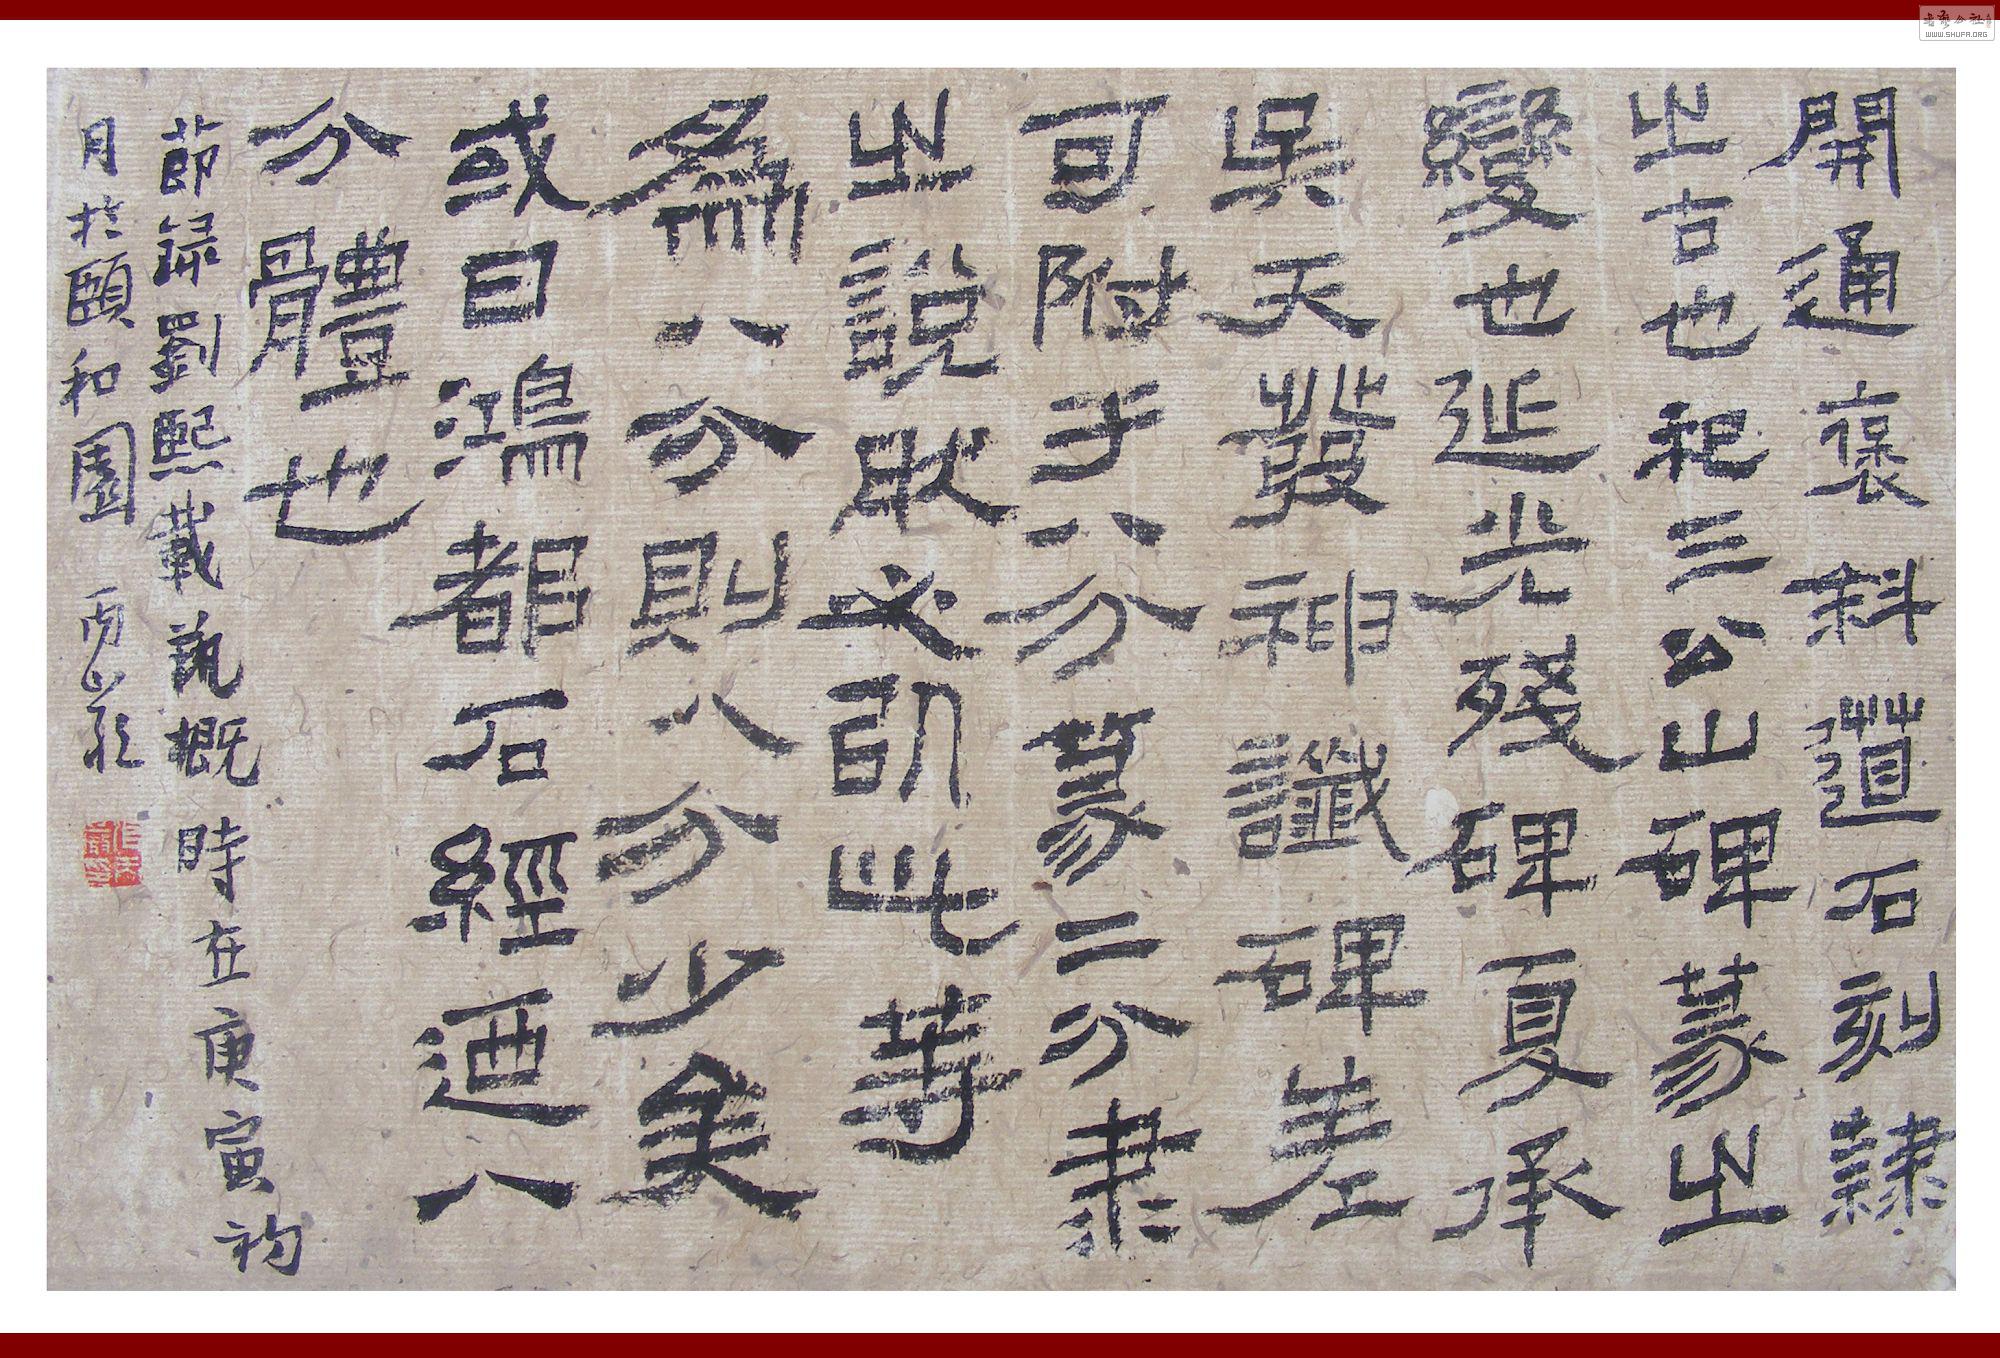 開通褒斜道石刻隸
之古也祀三公山碑篆之
變也延光殘碑夏承
吴天發神讖碑差
可附于八分篆二分隶
之說肰必以此等
為八分則八分少矣
或曰鴻都石經迺八
分體也
節録劉熙載蓺概時在庚寅
月於頤和園
WWW.SHUFA.ORG